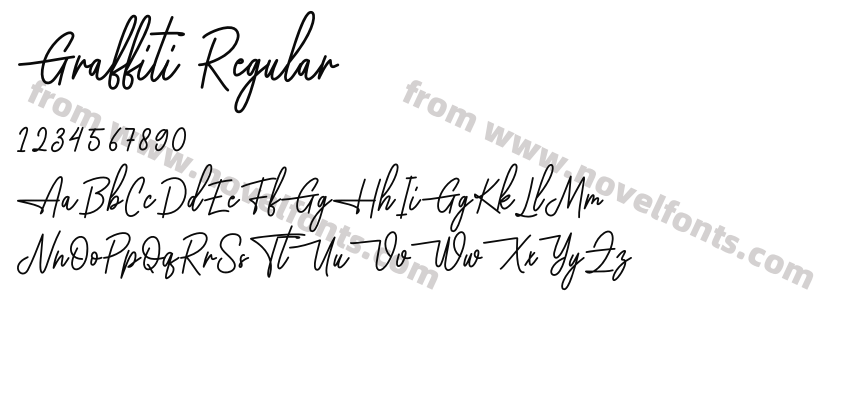 Graffiti Regular
1234567890
AaBbCcDdEeFfGgHhIiGgKkLlMm
NnOoPpQqRrSsTtUuVvWwXxYyZz
from www.novelfonts.com
from www.novelfonts.com